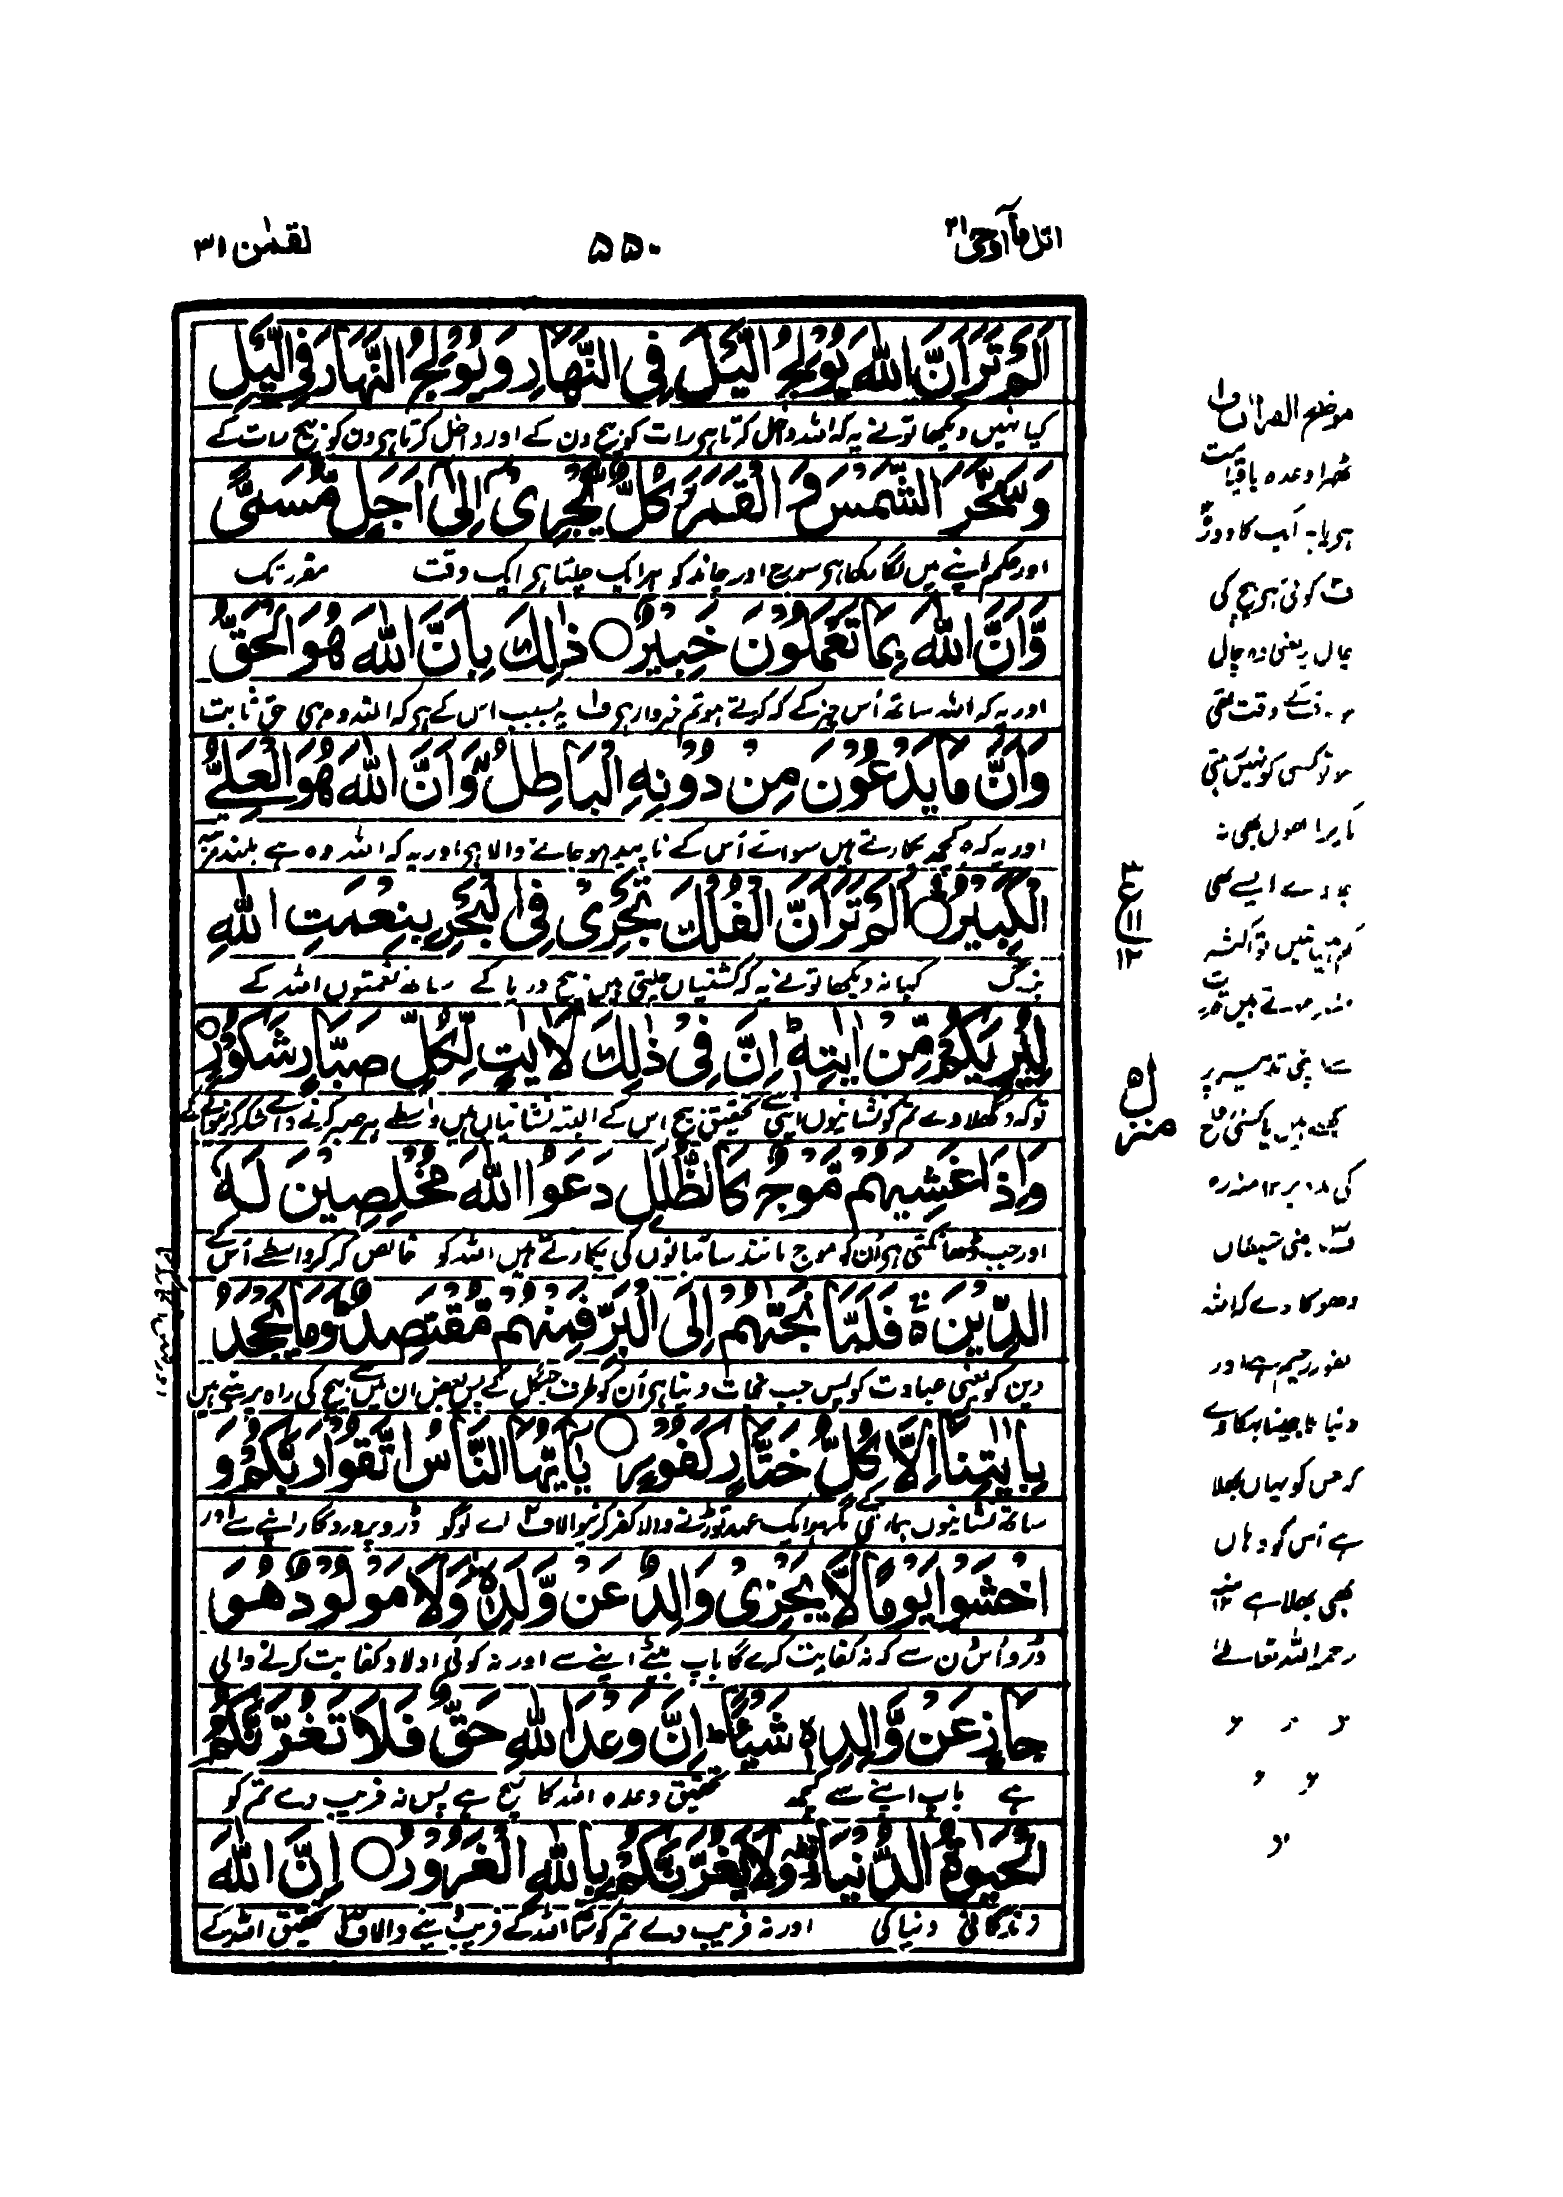 اتل مآ اوحی ۲۱
۵۵۰
لقمٰن ۳۱
اَلَمْ تَرَ اَنَّ اللّٰهَ يُوْلِجُ الَّيْلَ فِى النَّهَارِ وَيُوْلِجُ النَّهَارَ فِى الَّيْلِ
کیا نہیں دیکھا تونے یہ کہ اللہ داخل کرتا ہی رات کو بیچ دن کے اور داخل کرتا ہی دن کو بیچ رات کے
وَسَخَّرَ الشَّمْسَ وَالْقَمَرَ كُلٌّ يَّجْرِىْٓ اِلٰٓى اَجَلٍ مُّسَمًّى
اور حکم اپنے میں لگا رکھا ہی سورج اور چاند کو ہر ایک چلتا ہی ایک وقت مقرر تک
وَّاَنَّ اللّٰهَ بِمَا تَعْمَلُوْنَ خَبِيْرٌ ○ ذٰلِكَ بِاَنَّ اللّٰهَ هُوَ الْحَقُّ
اور یہ کہ اللہ ساتھ اُس چیز کے کہ کرتے ہو تم خبردار ہی ف۱ یہ بسبب اس کے ہی کہ اللہ وہی ہی حق ثابت
وَاَنَّ مَا يَدْعُوْنَ مِنْ دُوْنِهِ الْبَاطِلُ وَاَنَّ اللّٰهَ هُوَ الْعَلِىُّ
اور یہ کہ جو کچھ پکارتے ہیں سوائے اُس کے ناپید ہو جانے والا ہی اور یہ کہ اللہ وہ ہے بلند مرتبہ
الْكَبِيْرُ ○ اَلَمْ تَرَ اَنَّ الْفُلْكَ تَجْرِىْ فِى الْبَحْرِ بِنِعْمَتِ اللّٰهِ
بزرگ کیا نہ دیکھا تونے یہ کہ کشتیاں چلتی ہیں بیچ دریا کے ساتھ نعمتوں اللہ کے
لِيُرِيَكُمْ مِّنْ اٰيٰتِهٖ ط اِنَّ فِىْ ذٰلِكَ لَاٰيٰتٍ لِّكُلِّ صَبَّارٍ شَكُوْرٍ ○
توکہ دکھلاوے تم کو نشانیوں اپنی سے تحقیق بیچ اس کے البتہ نشانیاں ہیں واسطے ہر صبر کرنے والے شکر کرنیوالے کے
وَاِذَا غَشِيَهُمْ مَّوْجٌ كَالظُّلَلِ دَعَوُا اللّٰهَ مُخْلِصِيْنَ لَهُ
اور جب ڈھانکتی ہی اُن کو موج مانند سائبانوں کی پکارتے ہیں اللہ کو خالص کر کر واسطے اُس کے
الدِّيْنَ ۚ فَلَمَّا نَجّٰىهُمْ اِلَى الْبَرِّ فَمِنْهُمْ مُّقْتَصِدٌ وَمَا يَجْحَدُ
دین کو یعنی عبادت کو پس جب نجات دیتا ہی اُن کو طرف جنگل کے پس بعض ان میں سے بیچ کی راہ پر رہتے ہیں
بِاٰيٰتِنَآ اِلَّا كُلُّ خَتَّارٍ كَفُوْرٍ ○ يٰٓاَيُّهَا النَّاسُ اتَّقُوْا رَبَّكُمْ وَ
ساتھ نشانیوں ہماری کے مگر ہر ایک عہد توڑنے والا کفر کرنیوالا ف۲ اے لوگو ڈرو پروردگار اپنے سے اور
اخْشَوْا يَوْمًا لَّا يَجْزِىْ وَالِدٌ عَنْ وَّلَدِهٖ وَلَا مَوْلُوْدٌ هُوَ
ڈرو اُس دن سے کہ نہ کفایت کرے گا باپ بیٹے اپنے سے اور نہ کوئی اولاد کفایت کرنے والی
جَازٍ عَنْ وَّالِدِهٖ شَيْئًا ط اِنَّ وَعْدَ اللّٰهِ حَقٌّ فَلَا تَغُرَّنَّكُمُ
ہے باپ اپنے سے کچھ تحقیق وعدہ اللہ کا سچ ہے پس نہ فریب دے تم کو
الْحَيٰوةُ الدُّنْيَا وَلَا يَغُرَّنَّكُمْ بِاللّٰهِ الْغَرُوْرُ ○ اِنَّ اللّٰهَ
زندگانی دنیا کی اور نہ فریب دے تم کو ساتھ اللہ کے فریب دینے والا ف۳ تحقیق اللہ کے
موضح القرآن ف۱
ٹھہرا وعدہ یا قیامت
کوئی ہر بیچ کی
چال یعنی وہ چال
وقت تھی
کسی کو نہیں
بھول بھی نہ
ایسے بھی
اپنی تدبیر پر
یعنی شیطان
دھوکا دے کہ اللہ
غفور رحیم ہے اور
دنیا کا جینا بہکاوے
کہ جس کو یہاں بھلا
ہے اُس کو وہاں
بھی بھلا ہے ۱۲ منہ
رحمہ اللہ تعالےٰ
۳
ع
۱۱
۱۲
منزل ۵